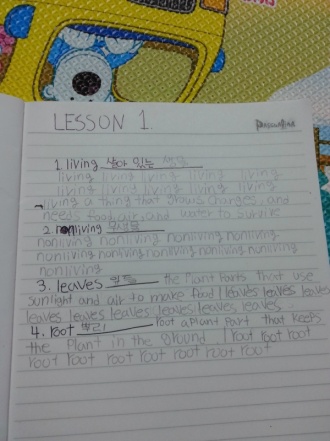 LESSON 1.
1. living 살아 있는 생물
living living living living living
living living living living living
living a thing that grows changes, and
needs food, air, and water to survive
2. nonliving 무생물
nonliving nonliving nonliving nonliving
nonliving nonliving nonliving nonliving nonliving
nonliving
3. leaves 잎들 the plant parts that use
sunlight and air to make food leaves leaves leaves
leaves leaves leaves leaves leaves leaves
4. root 뿌리 root a plant part that keeps
the plant in the ground root root root
root root root root root root root